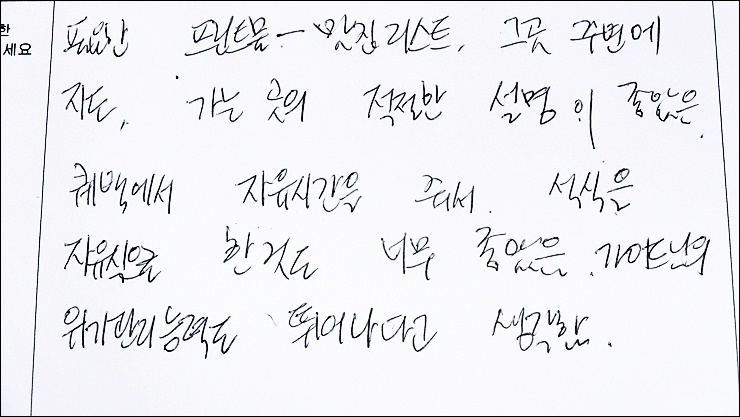 한
세요
필요한 프린트물 - 맛집리스트, 그곳 주변에
지도, 가는 곳의 적절한 설명이 좋았음.
퀘백에서 자유시간을 주셔서 석식을
자유식으로 한것도 너무 좋았음. 가이드님의
위기관리능력도 뛰어나다고 생각함.